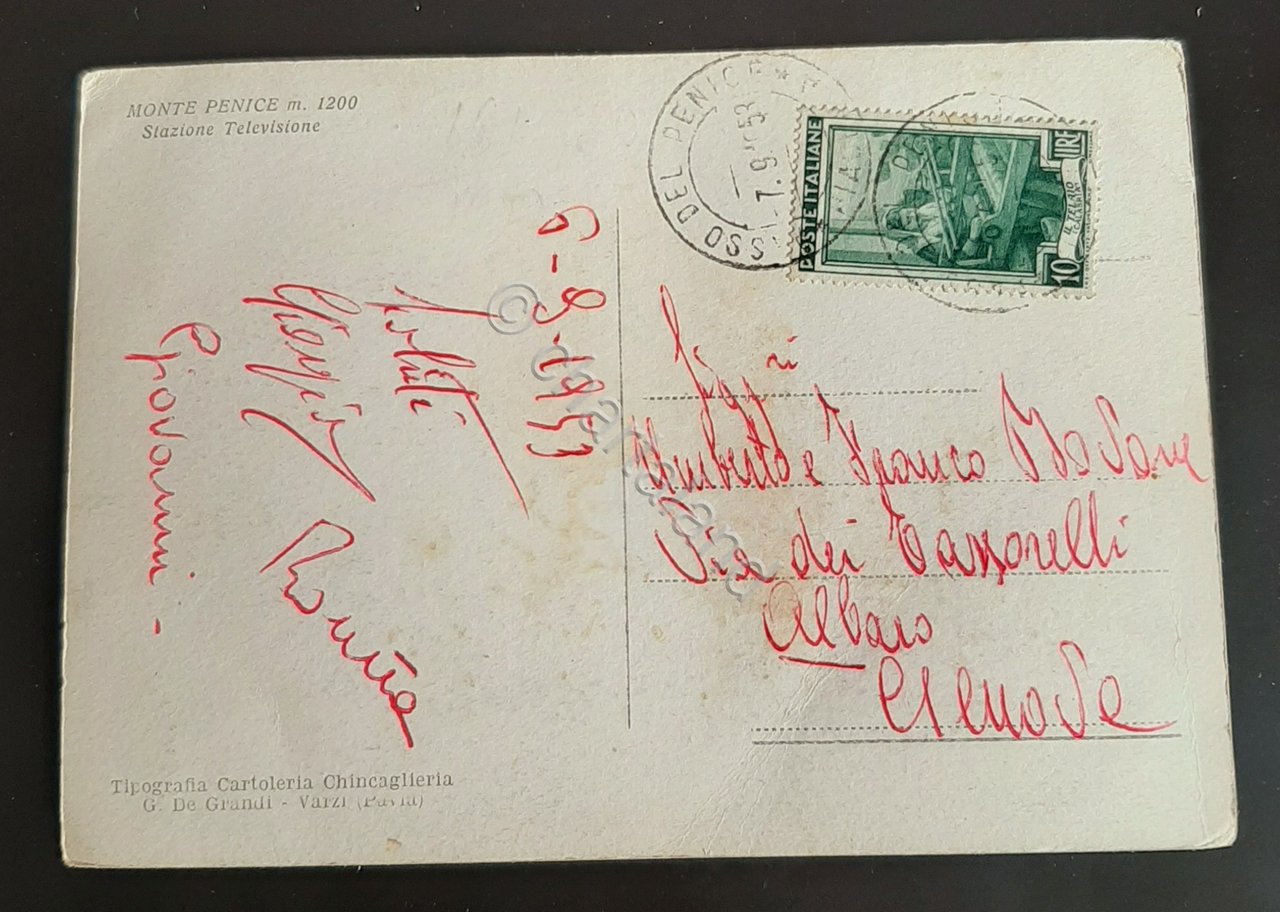 MONTE PENICE m. 1200
Stazione Televisione
6-9-1953
Saluti
Giorgio
Giovanni -
Tipografia Cartoleria Chincaglieria
G. De Grandi - Varzi (Pavia)
SSO DEL PENICE
7.9.53
POSTE ITALIANE
LIRE
10
IL TELAIO
Sigg ri
Umberto e Franco
Via dei
Albaro
Genova
© chartacana